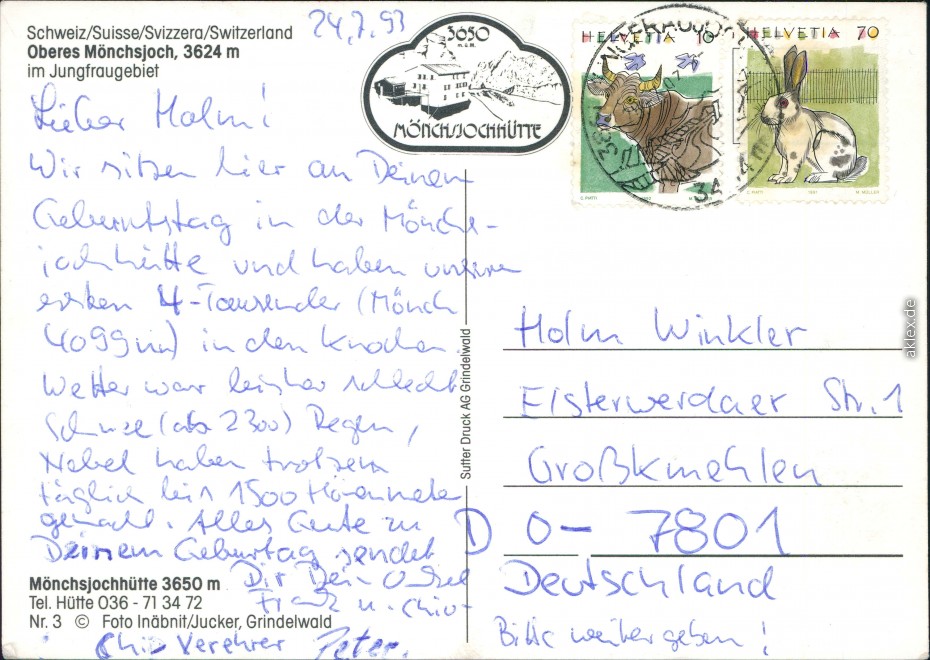 Schweiz/Suisse/Svizzera/Switzerland
Oberes Mönchsjoch, 3624 m
im Jungfraugebiet
24.7.93
3650
m.ü.M.
MÖNCHSJOCHHÜTTE
HELVETIA 10
HELVETIA 70
Lieber Holm!
Wir sitzen hier an Deinem
Geburtstag in der Mönchs-
jochhütte und haben unseren
ersten 4-Tausender (Mönch
4099m) in den Knochen
Wetter war bisher schlecht
Schnee (ab 2300) Regen,
Nebel haben trotzdem
täglich bis 1500 Höhenmeter
gemacht. Alles Gute zu
Deinem Geburtstag sendet
Dir Dein Onkel
Frank u.
Verehrer Peter.
Sutter Druck AG Grindelwald
Holm Winkler
Elsterwerdaer Str. 1
Großkmehlen
D O-7801
Deutschland
Bitte weitergeben!
Mönchsjochhütte 3650 m
Tel. Hütte 036 - 71 34 72
Nr. 3 © Foto Inäbnit/Jucker, Grindelwald
aklex.de